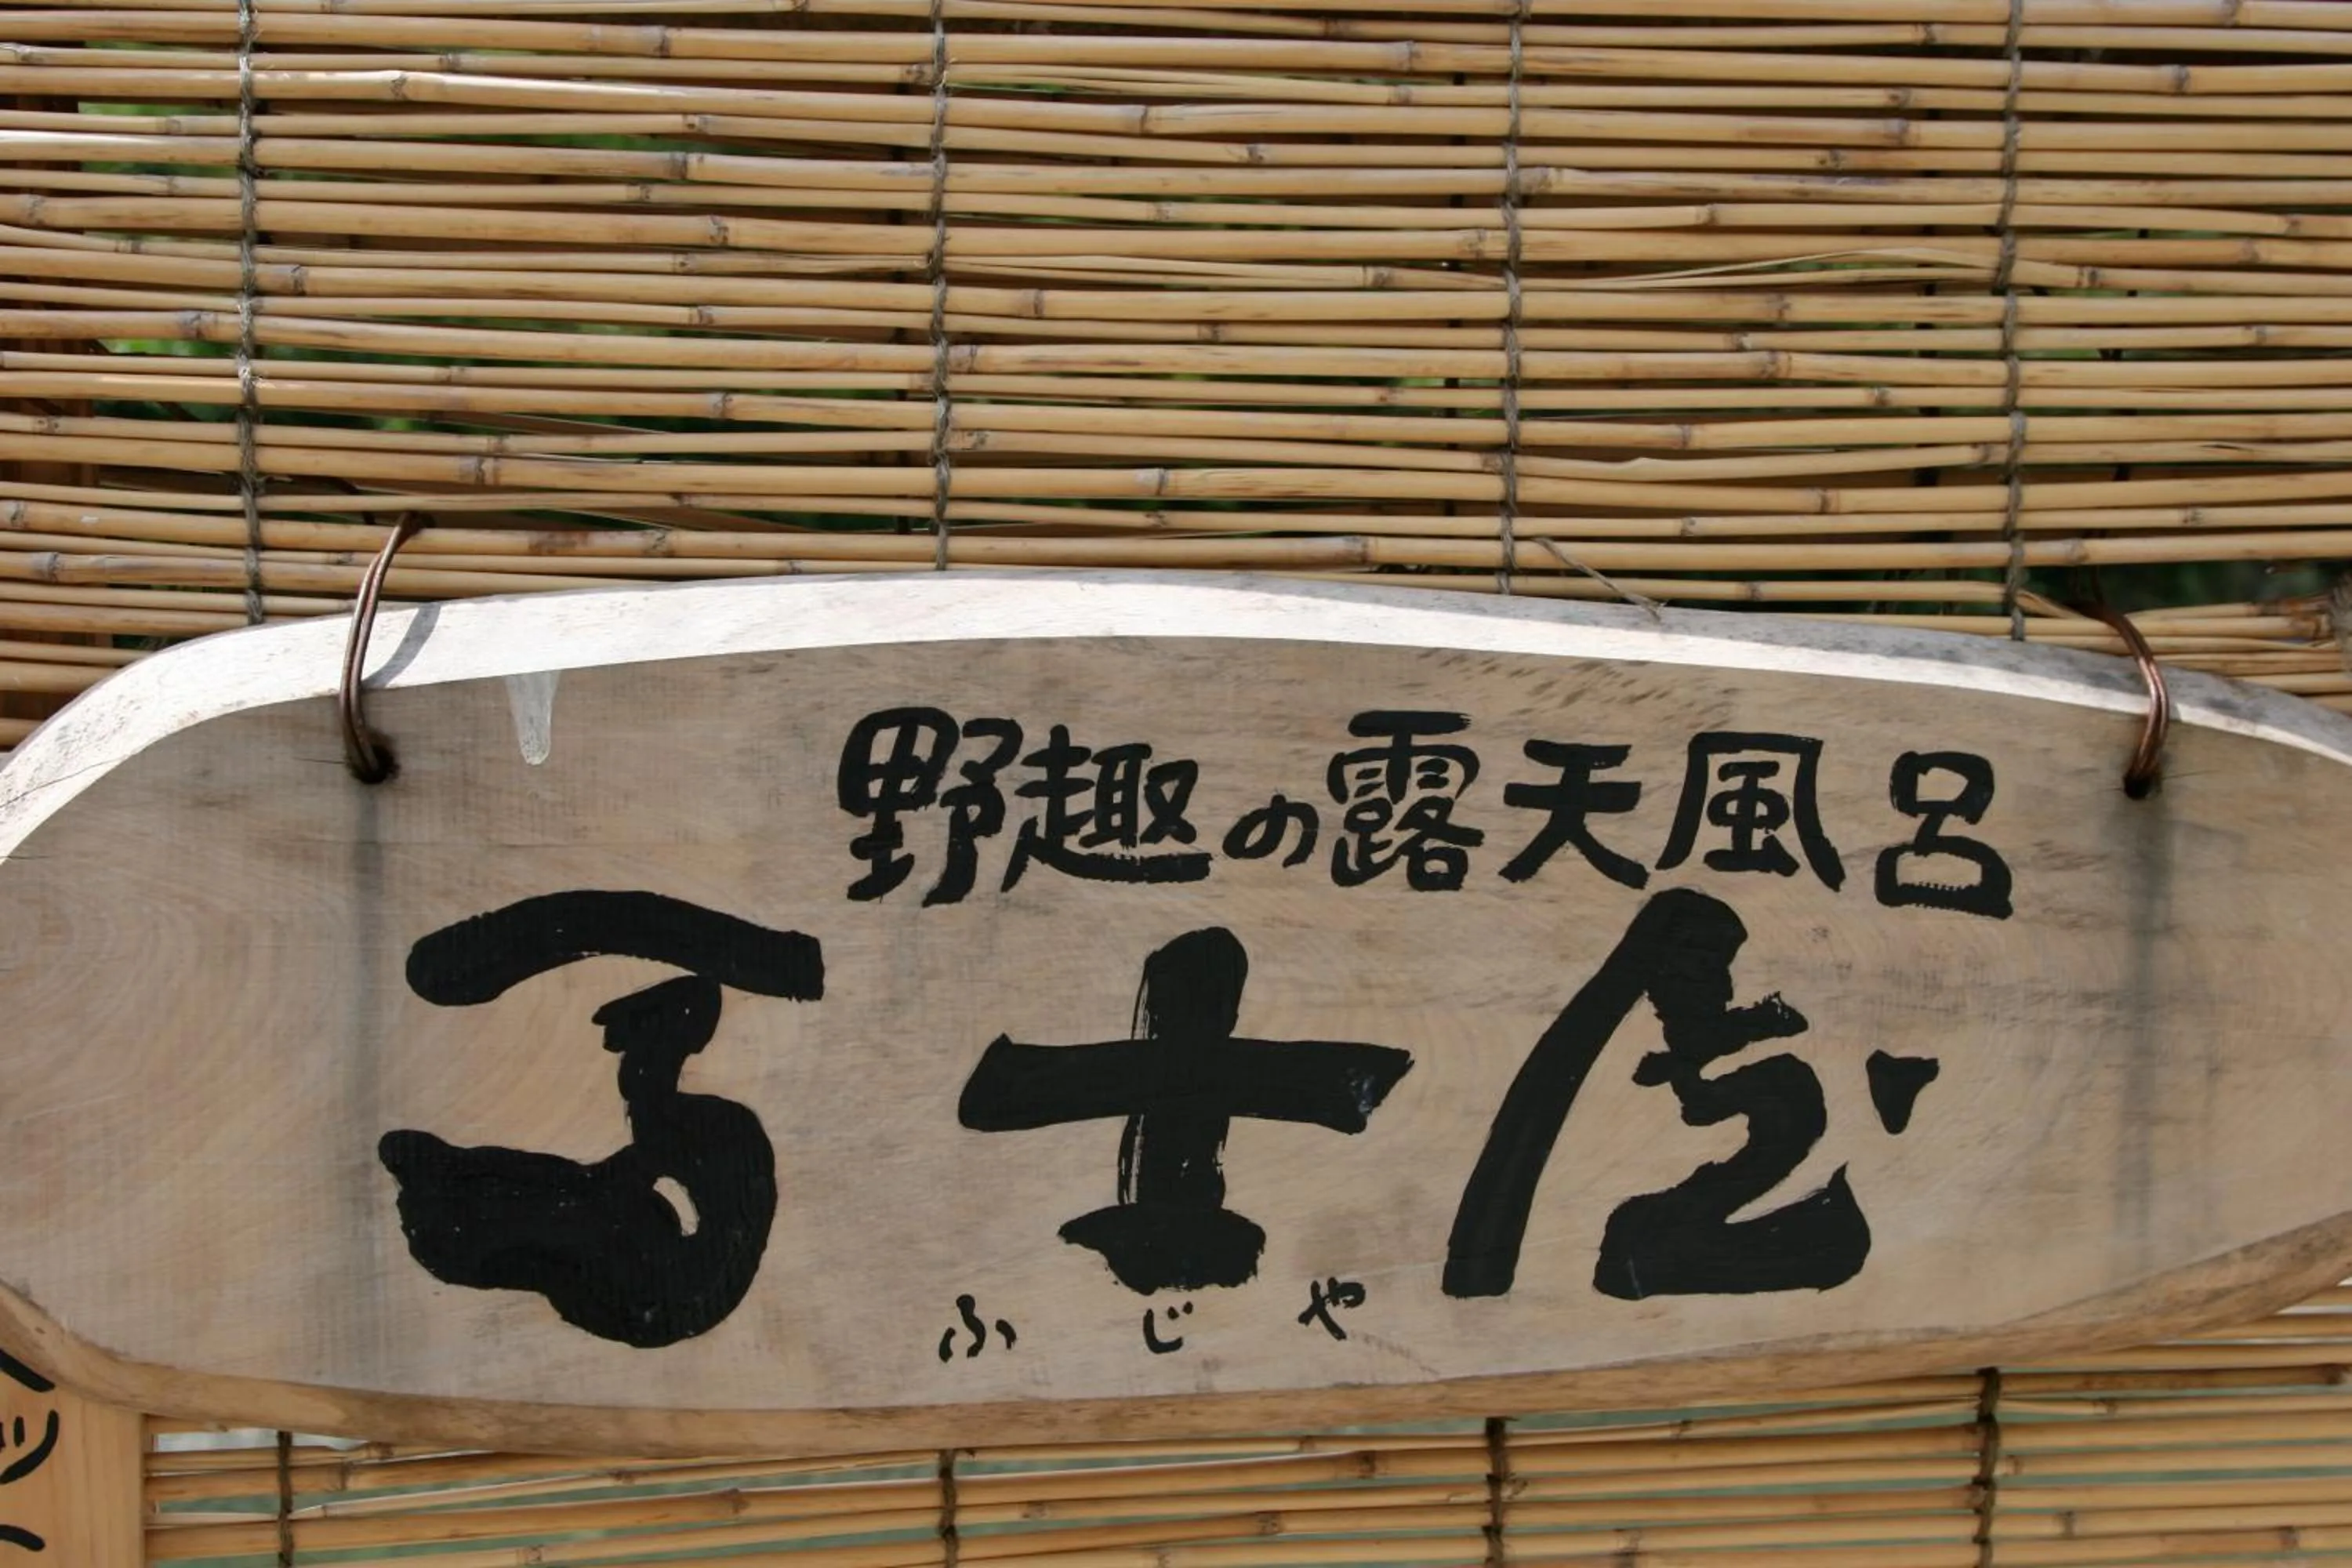 野趣の露天風呂
冨士屋
ふじや